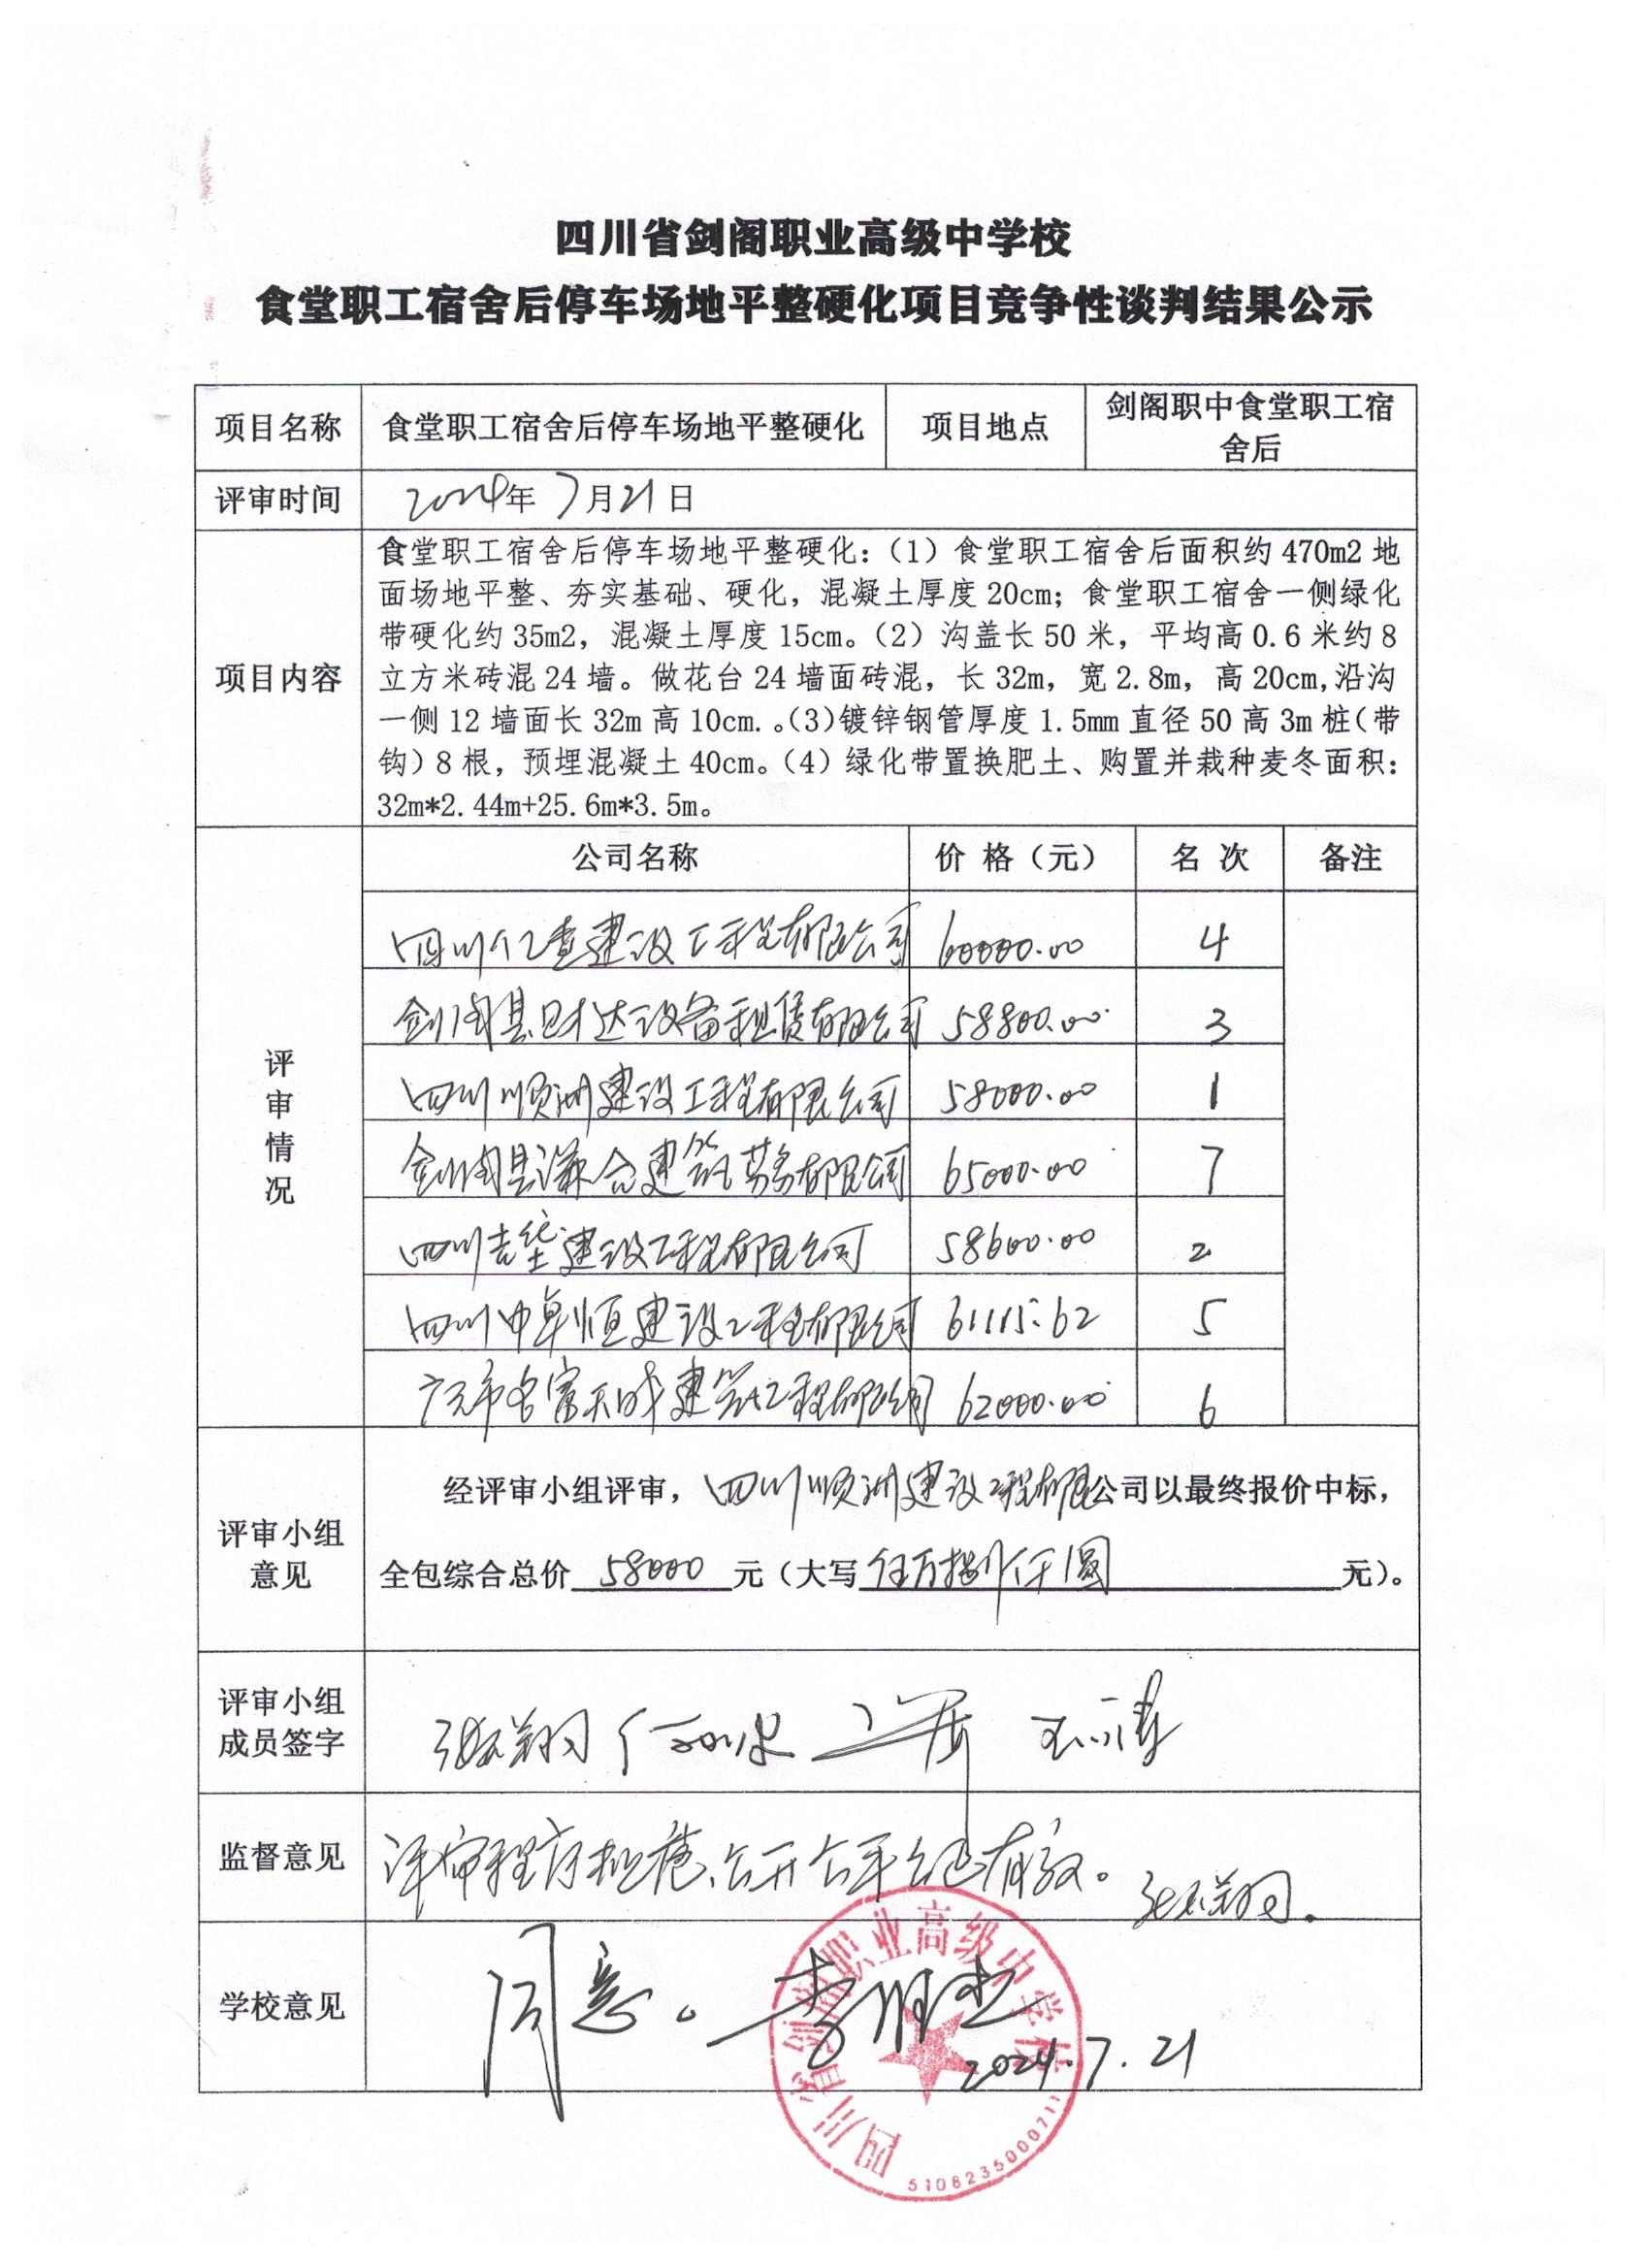 四川省剑阁职业高级中学校
食堂职工宿舍后停车场地平整硬化项目竞争性谈判结果公示
项目名称 食堂职工宿舍后停车场地平整硬化 项目地点 剑阁职中食堂职工宿
舍后
评审时间 2024年7月21日
项目内容
食堂职工宿舍后停车场地平整硬化：（1）食堂职工宿舍后面积约470m2地
面场地平整、夯实基础、硬化，混凝土厚度20cm；食堂职工宿舍一侧绿化
带硬化约35m2，混凝土厚度15cm。（2）沟盖长50米，平均高0.6米约8
立方米砖混24墙。做花台24墙面砖混，长32m，宽2.8m，高20cm,沿沟
一侧12墙面长32m高10cm.。（3）镀锌钢管厚度1.5mm直径50高3m桩（带
钩）8根，预埋混凝土40cm。（4）绿化带置换肥土、购置并栽种麦冬面积：
32m*2.44m+25.6m*3.5m。
评审情况
公司名称 价 格（元） 名 次 备注
四川亿 建设工程有限公司 60000.00 4
剑阁县 达设备租赁有限公司 58800.00 3
四川顺洲建设工程有限公司 58000.00 1
剑阁县 合建筑劳务有限公司 65000.00 7
四川吉 建设工程有限公司 58600.00 2
四川中卓恒建设工程有限公司 61115.62 5
广元市名富天成建筑工程有限公司 62000.00 6
评审小组
意见
经评审小组评审，四川顺洲建设工程有限公司以最终报价中标，
全包综合总价 58000 元（大写 伍万捌仟圆 元）。
评审小组
成员签字
监督意见 评审程序规范、公开公平公正有效。
学校意见 同意。
2024.7.21
四川省剑阁职业高级中学校
5108235000711